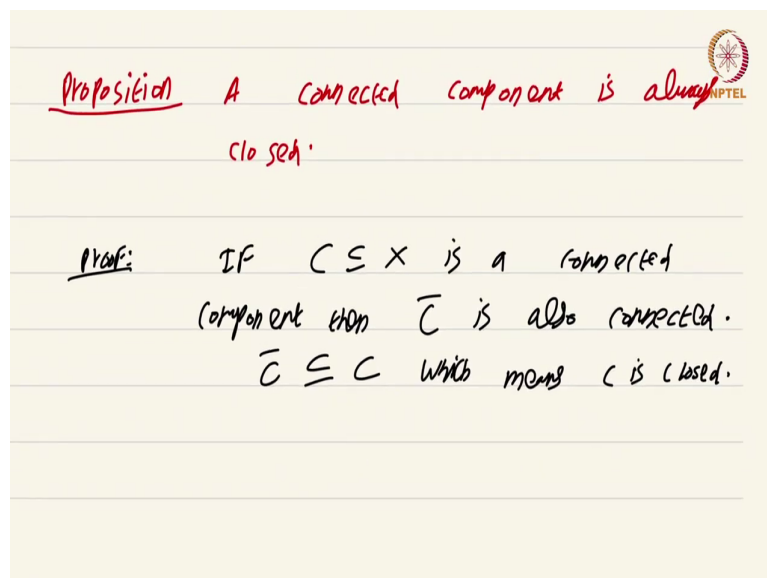 Proposition A connected component is always
NPTEL
closed.
Proof: IF C ⊆ X is a connected
component then C̅ is also connected.
C̅ ⊆ C which means C is closed.